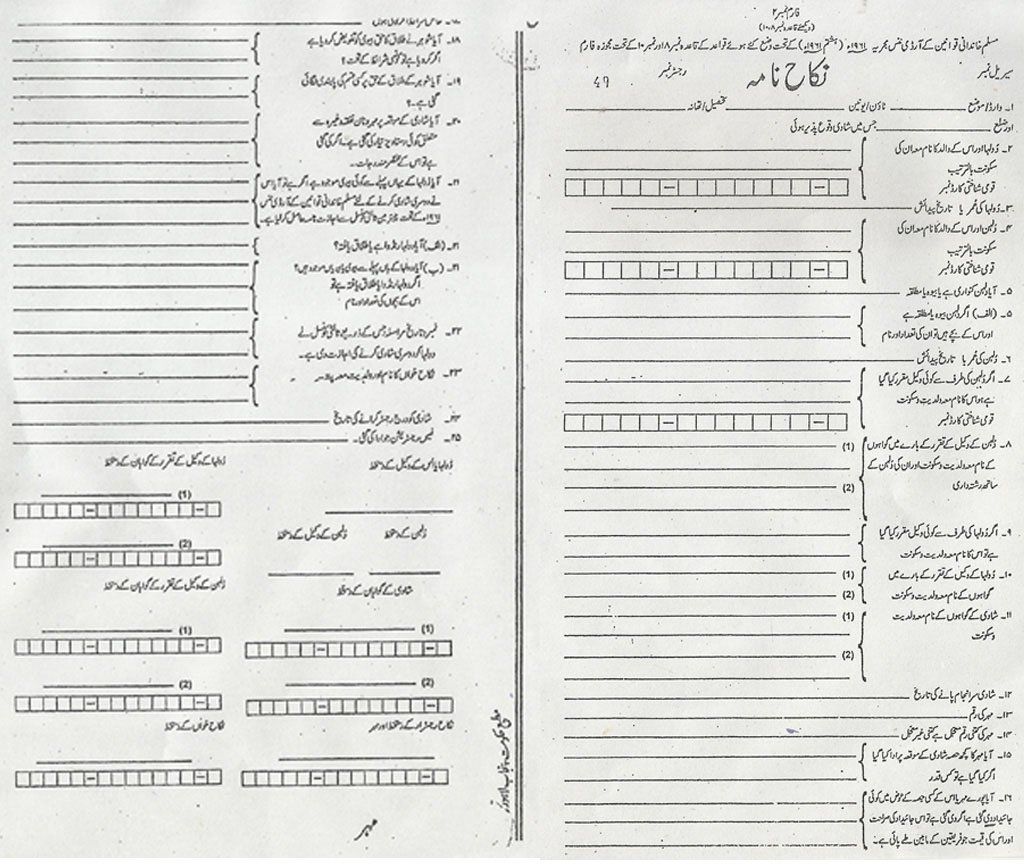 فارم نمبر ۲
(دیکھئے قاعدہ نمبر ۸،۱۰)
مسلم خاندانی قوانین کے آرڈی ننس مجریہ ۱۹۶۱ء (ہشتم ۱۹۶۱ء) کے تحت وضع کئے ہوئے قواعد کے قاعدہ نمبر ۸ اور نمبر ۱۰ کے تحت مجوزہ فارم
سیریل نمبر نکاح نامہ رجسٹر نمبر 47
۱۔ وارڈ/موضع ٹاؤن/یونین تحصیل/تھانہ
اور ضلع جس میں شادی وقوع پذیر ہوئی
۲۔ دُولہا اور اس کے والد کا نام معہ ان کی
سکونت بالترتیب
قومی شناختی کارڈ نمبر
۳۔ دُولہا کی عمر یا تاریخ پیدائش
۴۔ دُلہن اور اس کے والد کا نام معہ ان کی
سکونت بالترتیب
قومی شناختی کارڈ نمبر
۵۔ آیا دُلہن کنواری ہے یا بیوہ یا مطلقہ
۵۔ (الف) اگر دُلہن بیوہ یا مطلقہ ہے
اور اس کے بچے ہیں تو ان کی تعداد اور نام
۶۔ دُلہن کی عمر یا تاریخ پیدائش
۷۔ اگر دُلہن کی طرف سے کوئی وکیل مقرر کیا گیا
ہے تو اس کا نام معہ ولدیت و سکونت
قومی شناختی کارڈ نمبر
۸۔ دُلہن کے وکیل کے تقرر کے بارے میں گواہوں (1)
کے نام معہ ولدیت و سکونت اور ان کی دُلہن کے
ساتھ رشتہ داری (2)
۹۔ اگر دُولہا کی طرف سے کوئی وکیل مقرر کیا گیا
ہے تو اس کا نام معہ ولدیت و سکونت
۱۰۔ دُولہا کے وکیل کے تقرر کے بارے میں (1)
گواہوں کے نام معہ ولدیت و سکونت (2)
۱۱۔ شادی کے گواہوں کے نام معہ ولدیت (1)
و سکونت
(2)
۱۲۔ شادی سرانجام پانے کی تاریخ
۱۳۔ مہر کی رقم
۱۴۔ مہر کی کتنی رقم معجل ہے کتنی غیر معجل
۱۵۔ آیا مہر کا کچھ حصہ شادی کے موقعہ پر ادا کیا گیا
اگر کیا گیا ہے تو کس قدر
۱۶۔ آیا پورے مہر یا اس کے کسی حصہ کے عوض میں کوئی
جائیداد دی گئی ہے اگر دی گئی ہے تو اس جائیداد کی صراحت
اور اس کی قیمت جو فریقین کے مابین طے پائی ہے۔
۱۷۔ خاص شرائط اگر کوئی ہوں
۱۸۔ آیا شوہر نے طلاق کا حق بیوی کو تفویض کر دیا ہے
اگر کر دیا ہے تو کونسی شرائط کے تحت؟
۱۹۔ آیا شوہر کے طلاق کے حق پر کسی قسم کی پابندی لگائی
گئی ہے۔؟
۲۰۔ آیا شادی کے موقعہ پر مہر و نان نفقہ وغیرہ سے
متعلق کوئی دستاویز تیار کی گئی ہے۔ اگر کی گئی
ہے تو اس کے مختصر مندرجات۔
۲۱۔ آیا دُولہا کے یہاں پہلے سے کوئی بیوی موجود ہے اگر ہے تو آیا اس
نے دوسری شادی کرنے کے لئے مسلم خاندانی قوانین کے آرڈی ننس
۱۹۶۱ء کے تحت چیئرمین ثالثی کونسل سے اجازت نامہ حاصل کر لیا ہے۔
۲۱۔ (الف) آیا دولہا رنڈوا ہے یا طلاق یافتہ؟
۲۱۔ (ب) آیا دولہا کے ہاں پہلے سے بیوی یا بیویاں موجود ہیں؟
اگر دولہا رنڈوا یا طلاق یافتہ ہے تو
اس کے بچوں کی تعداد اور نام
۲۲۔ نمبر و تاریخ مراسلہ جس کے ذریعہ ثالثی کونسل نے
دولہا کو دوسری شادی کرنے کی اجازت دی ہے۔
۲۳۔ نکاح خواں کا نام اور ولدیت معہ پتہ
۲۴۔ شادی کو درج رجسٹر کرانے کی تاریخ
۲۵۔ فیس رجسٹریشن جو ادا کی گئی۔
دُولہا یا اس کے وکیل کے دستخط دُولہا کے وکیل کے تقرر کے گواہان کے دستخط
(1)
(2)
دُلہن کے دستخط دُلہن کے وکیل کے دستخط
شادی کے گواہان کے دستخط دُلہن کے وکیل کے تقرر کے گواہان کے دستخط
(1) (1)
(2) (2)
نکاح رجسٹرار کے دستخط اور مہر نکاح خواں کے دستخط
مہر